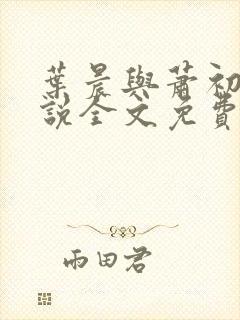 葉晨與蕭初
說全文免費
雨田君